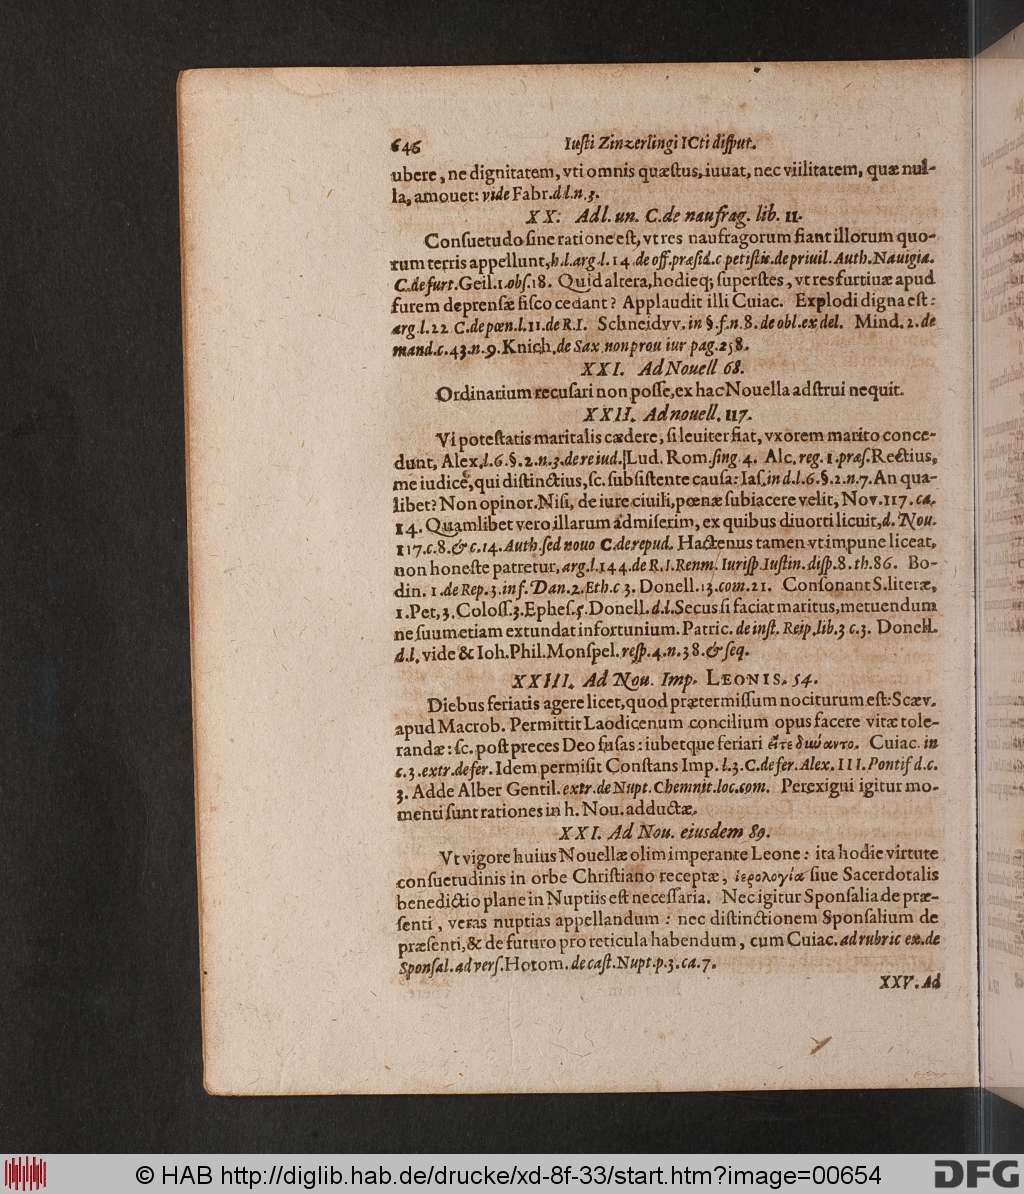 646 Iusti Zinzerlingi ICti disput.
ubere, ne dignitatem, vti omnis quæstus, iuuat, nec viilitatem, quæ nul-
la, amouet: vide Fabr. d.l. n. 3.
XX. Ad l. un. C. de naufrag. lib. 11.
Consuetudo sine ratione est, vt res naufragorum fiant illorum quo-
rum terris appellunt, h. l. arg. l. 14 de off. præsid. c petistis. de priuil. Auth. Nauigia.
C. de furt. Geil. 1. obs. 18. Quid altera, hodieq; superstes, vt res furtiuæ apud
furem deprensæ fisco cedant? Applaudit illi Cuiac. Explodi digna est:
arg. l. 22 C. de pœn. l. 11. de R. I. Schneidvv. in §. f. n. 8. de obl. ex del. Mind. 2. de
mand. c. 43. n. 9. Knich. de Sax non prou iur pag. 258.
XXI. Ad Nouell 68.
Ordinarium recusari non posse, ex hac Nouella adstrui nequit.
XXII. Ad nouell. 117.
Vi potestatis maritalis cædere, si leuiter fiat, vxorem marito conce-
dunt, Alex. l. 6. §. 2. n. 3. de re iud. Lud. Rom. sing. 4. Alc. reg. 1. præs. Rectius,
me iudice, qui distinctius, sc. subsistente causa: Ias. in d. l. 6. §. 2. n. 7. An qua-
libet? Non opinor. Nisi, de iure ciuili, pœnæ subiacere velit, Nov. 117. ca.
14. Quamlibet vero illarum admiserim, ex quibus diuorti licuit, d. Nou.
117. c. 8. & c. 14. Auth. sed nouo C. de repud. Hactenus tamen vt impune liceat,
non honeste patretur, arg. l. 144. de R. I. Renm. Iurisp. Iustin. disp. 8. th. 86. Bo-
din. 1. de Rep. 3. inf. Dan. 2. Eth. c 3. Donell. 13. com. 21. Consonant S. literæ,
1. Pet, 3. Coloss. 3. Ephes. 5. Donell. d. l. Secus si faciat maritus, metuendum
ne suum etiam extundat infortunium. Patric. de inst. Reip. lib. 3 c. 3. Donell.
d. l. vide & Ioh. Phil. Monspel. resp. 4. n. 38. & seq.
XXIII. Ad Nou. Imp. LEONIS. 54.
Diebus feriatis agere licet, quod prætermissum nociturum est: Scæv.
apud Macrob. Permittit Laodicenum concilium opus facere vitæ tole-
randæ: sc. post preces Deo fusas: iubetque feriari Cuiac. in
c. 3. extr. de fer. Idem permisit Constans Imp. l. 3. C. de fer. Alex. III. Pontif d. c.
3. Adde Alber Gentil. extr. de Nupt. Chemnit. loc. com. Perexigui igitur mo-
menti sunt rationes in h. Nou. adductæ.
XXI. Ad Nou. eiusdem 89.
Vt vigore huius Nouellæ olim imperante Leone: ita hodie virtute
consuetudinis in orbe Christiano receptæ, ἱερολογία siue Sacerdotalis
benedictio plane in Nuptiis est necessaria. Nec igitur Sponsalia de præ-
senti, veras nuptias appellandum: nec distinctionem Sponsalium de
præsenti, & de futuro pro reticula habendum, cum Cuiac. ad rubric ex. de
Sponsal. advers. Hotom. de cast. Nupt. p. 3. ca. 7.
XXV. Ad
© HAB http://diglib.hab.de/drucke/xd-8f-33/start.htm?image=00654 DFG